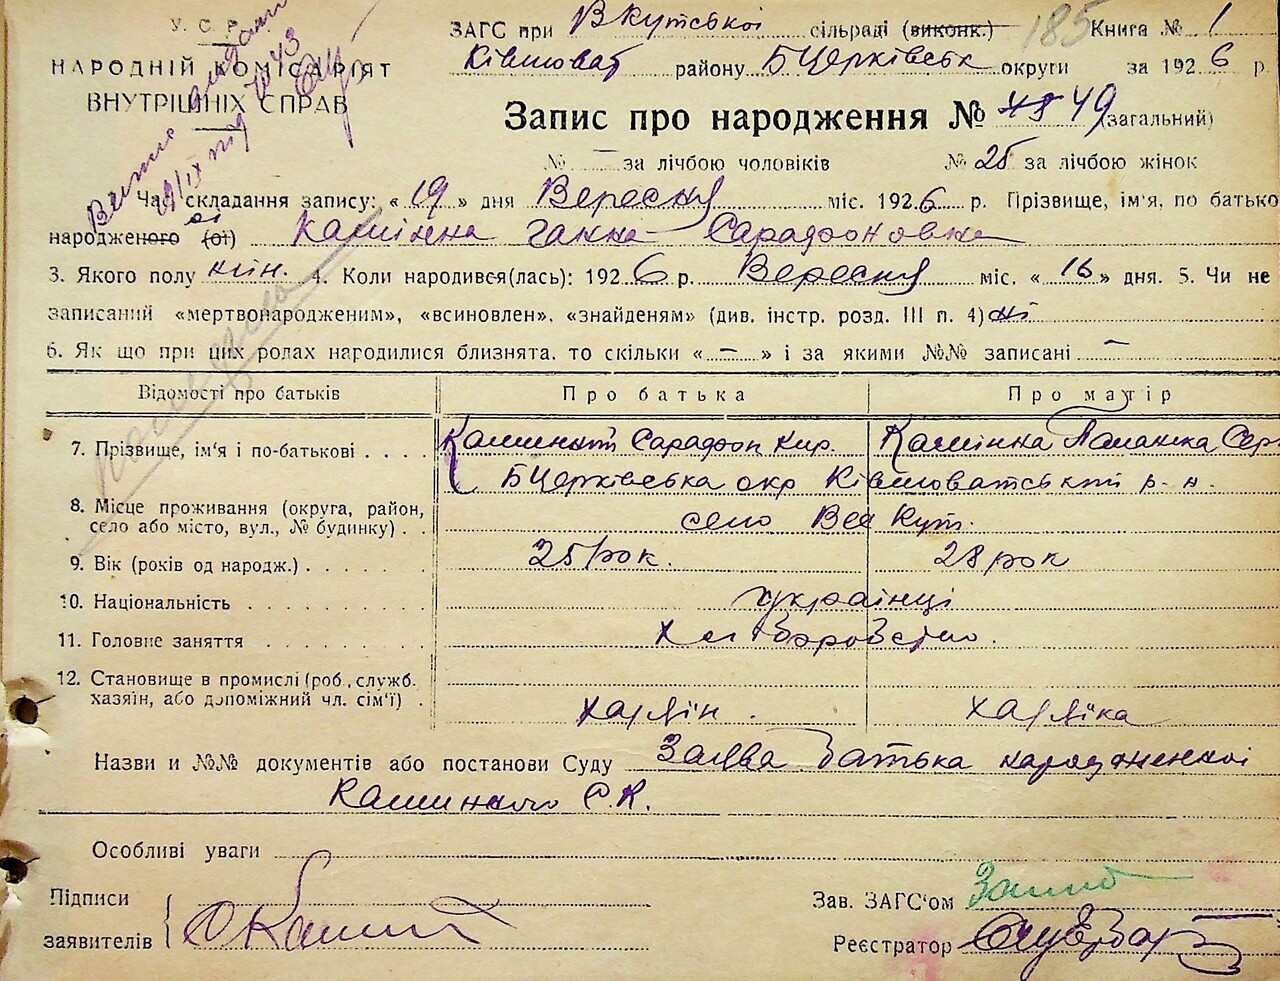 У. С. Р.
НАРОДНІЙ КОМІСАРІЯТ
ВНУТРІШНІХ СПРАВ
ЗАГС при Вкутської сільраді (виконк.) 185 Книга № 1
Ківшоват району БЦерківськ округи за 1926 р.
Запис про народження № 48 49 (загальний)
№ — за лічбою чоловіків № 25 за лічбою жінок
Час складання запису: « 19 » дня Вересня міс. 1926 р. Прізвище, ім'я, по батько
народженого (ої) Камінна Ганна Сарафоновна
3. Якого полу жін. 4. Коли народився(лась): 1926 р. Вересня міс. « 16 » дня. 5. Чи не
записаний «мертвонародженим», «всиновлен», «знайденям» (див. інстр. розд. III п. 4) ні
6. Як що при цих родах народилися близнята, то скільки « — » і за якими №№ записані —
Відомості про батьків Про батька Про матір
7. Прізвище, ім'я і по-батькові Сарафон Кир. Камінна
БЦерківська окр Ківшоватський р-н.
8. Місце проживання (округа, район,
село або місто, вул., № будинку) село Вел Кут.
9. Вік (років од народж.) 25 рок. 28 рок
10. Національність українці
11. Головне заняття Хліборобство.
12. Становище в промислі (роб., служб.
хазяїн, або допоміжний чл. сім'ї) хазяїн. хазяйка
Назви и №№ документів або постанови Суду Заява батька народженної
С. К.
Особливі уваги
Підписи
заявителів
Зав. ЗАГС'ом
Реєстратор